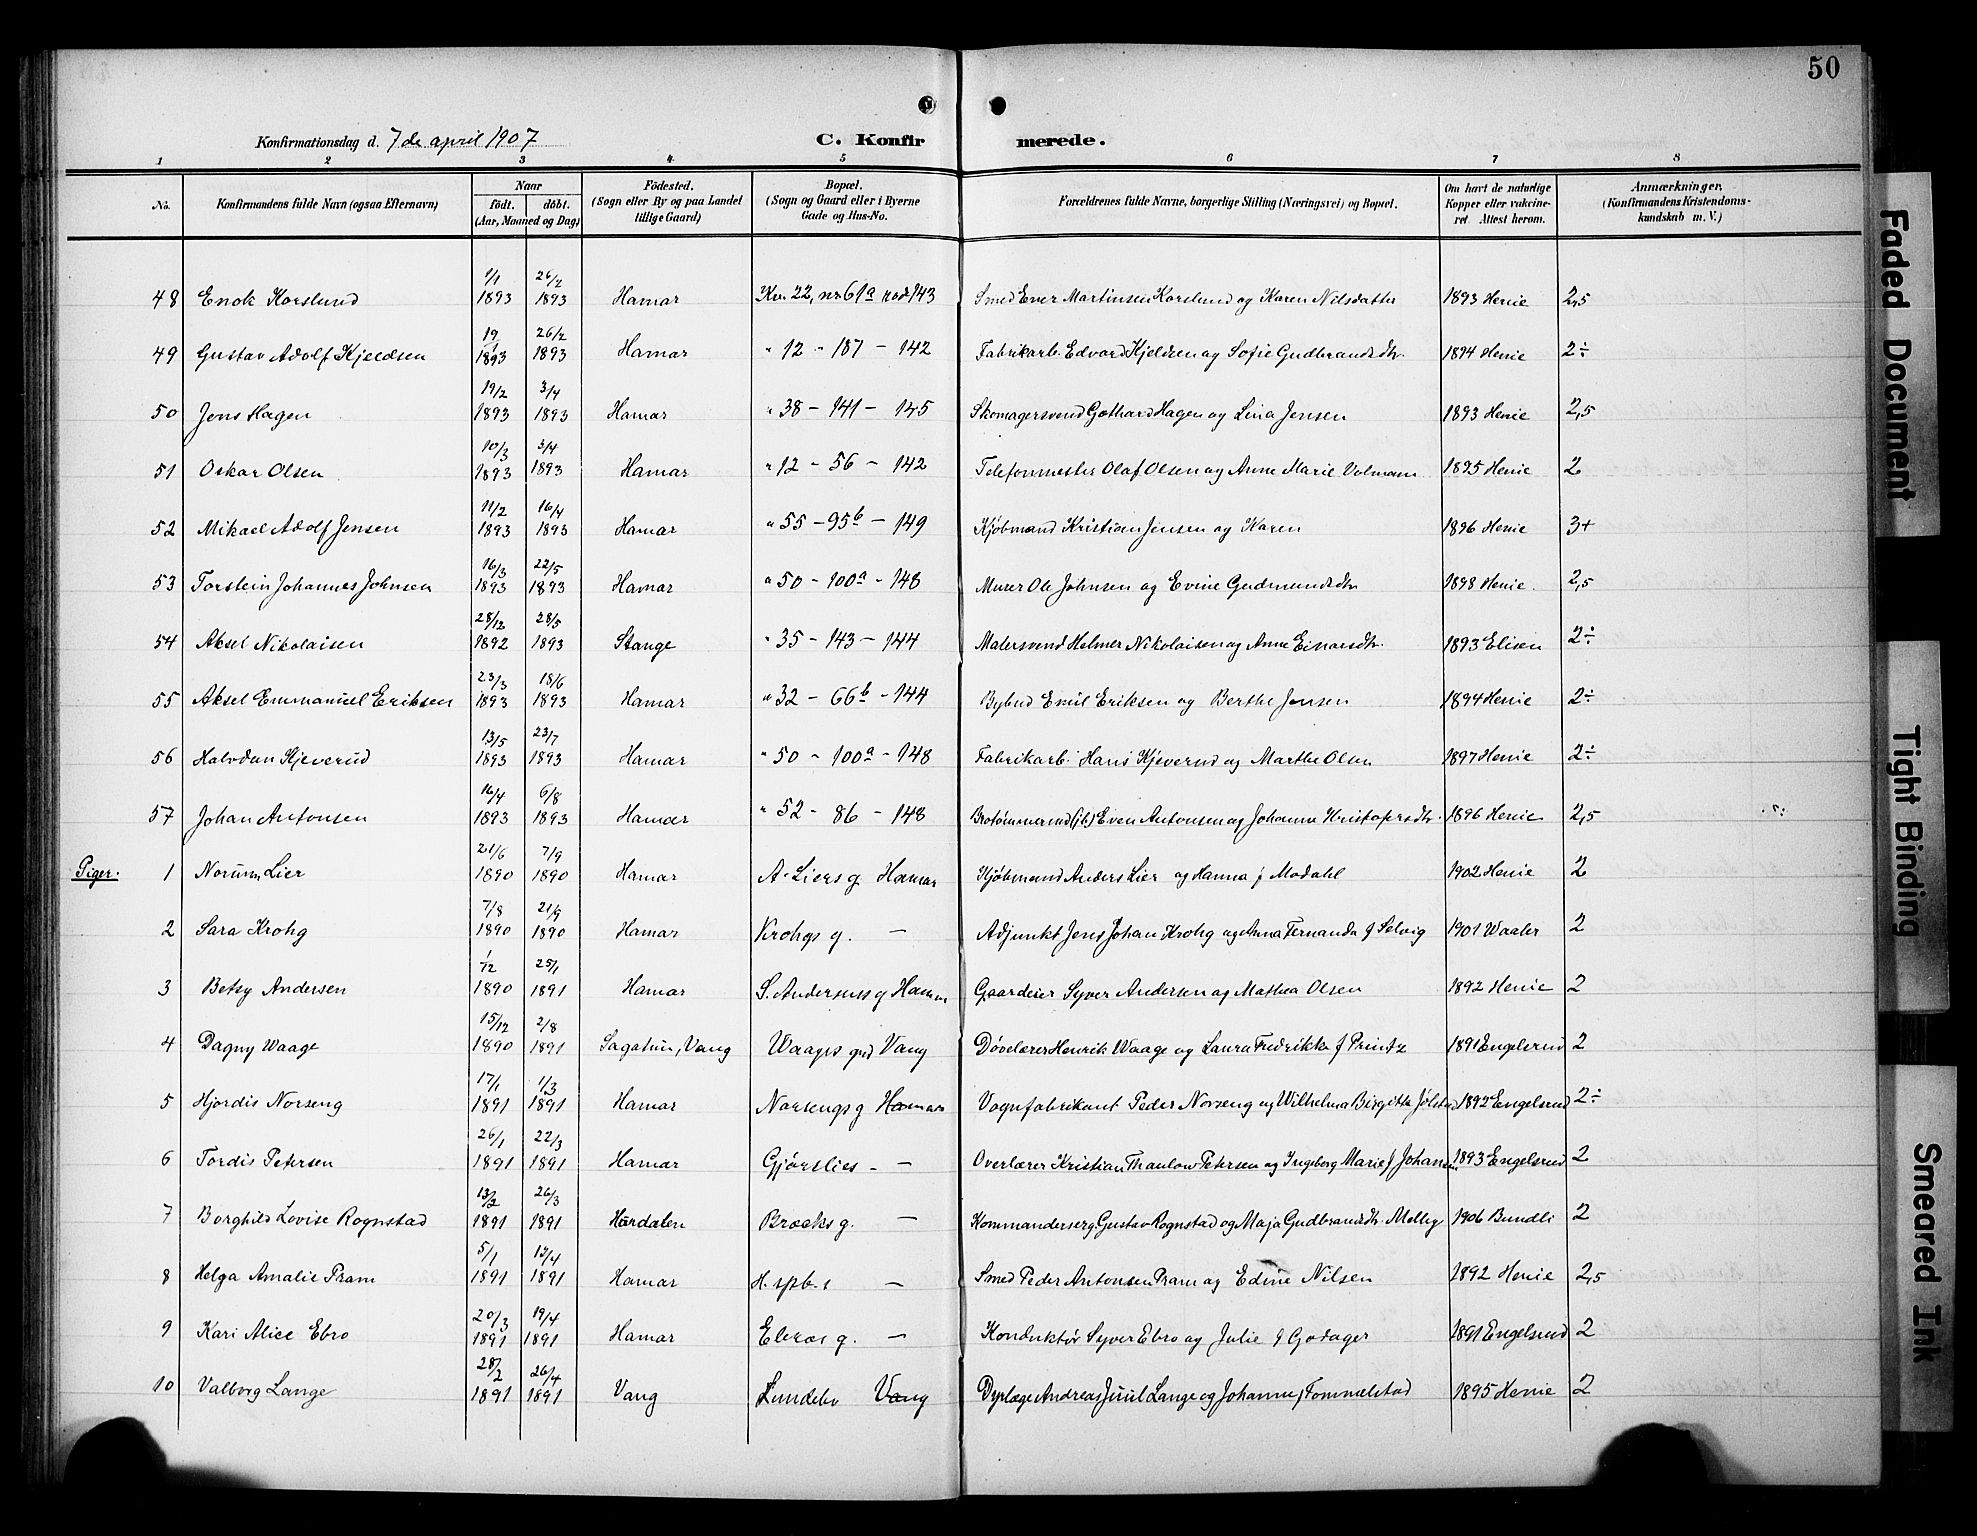 50
Konfirmationsdag d. 7de april 1907 C. Konfirmerede.
1 2 3 4 5 6 7 8
No. Konfirmandens fulde Navn (ogsaa Efternavn) Naar født. døbt. (Aar, Maaned og Dag) Födested. (Sogn eller By og paa Landet tillige Gaard) Bopæl. (Sogn og Gaard eller i Byerne Gade og Hus-No. Forældrenes fulde Navne, borgerlige Stilling (Næringsvei) og Bopæl. Om havt de naturlige Kopper eller vakcineret Attest herom. Anmærkninger. (Konfirmandens Kristendomskundskab m. V.)
48 Enok Korslund 1/1 1893 26/2 1893 Hamar Kv. 22, nr 61a rode 143 Smed Ever Martinsen Korslund og Karen Nilsdatter 1893 Henie 2,5
49 Gustav Adolf Kjeldsen 19/1 1893 26/2 1893 Hamar " 12 - 187 - 142 Fabrikarb. Edvard Kjeldsen og Sofie Gudbrandsdtr. 1894 Henie 2÷
50 Jens Hagen 19/2 1893 3/4 1893 Hamar " 38 - 141 - 145 Skomagersvend Gothard Hagen og Lina Jensen 1893 Henie 2,5
51 Oskar Olsen 10/3 1893 3/4 1893 Hamar " 12 - 56 - 142 Telefonmester Olaf Olsen og Anne Marie Volmann 1895 Henie 2
52 Mikael Adolf Jensen 11/2 1893 16/4 1893 Hamar " 55 - 95b - 149 Kjøbmand Kristian Jensen og Karen 1896 Henie 3+
53 Torstein Johannes Johnsen 16/3 1893 22/5 1893 Hamar " 50 - 100a - 148 Murer Ole Johnsen og Evine Gudmundsdtr 1898 Henie. 2,5
54 Aksel Nikolaisen 28/12 1892 28/5 1893 Stange " 35 - 143 - 144 Malersvend Helmer Nikolaisen og Anne Einarsdtr. 1893 Elisen 2÷
55 Aksel Emmanuel Eriksen 23/3 1893 18/6 1893 Hamar " 32 - 66b - 144 Bybud Emil Eriksen og Berthe Jensen 1894 Henie 2÷
56 Halvdan Kjeverud 13/5 1893 23/7 1893 Hamar " 50 - 100a - 148 Fabrikarb. Hans Kjeverud og Marthe Olsen 1897 Henie 2÷
57 Johan Antonsen 16/4 1893 6/8 1893 Hamar " 52 - 86 - 148 Even Antonsen og Johanne Kristofersdtr. 1896 Henie 2,5
Piger. 1 Norunn Lier 21/6 1890 7/9 1890 Hamar A. Liers g. Hamar Kjøbmand Anders Lier og Hanna f Modahl 1902 Henie 2
2 Sara Krohg 7/8 1890 21/9 1890 Hamar Krohgs g. — Adjunkt Jens Johan Krohg og Anna Fernanda f Selvig 1901 Waaler 2
3 Betsy Andersen 1/12 1890 25/1 1891 Hamar S. Andersens g Hamar Gaardeier Syver Andersen og Mathea Olsen 1892 Henie 2
4 Dagny Waage 15/12 1890 2/8 1891 Sagatun, Vang Waages grd Vang Døvelærer Henrik Waage og Laura Fredrikke f Printz 1891 Engelsrud 2
5 Hjordis Norseng 17/1 1891 1/3 1891 Hamar Norsengs g Hamar Vognfabrikant Peder Norseng og Wilhelma Birgitte Jølstad 1892 Engelsrud 2÷
6 Tordis Petersen 26/1 1891 22/3 1891 Hamar Gjørslies - — Overlærer Kristian Thaulow Petersen og Ingeborg Marie f Johansen 1893 Engelsrud 2
7 Borghild Lovise Rognstad 13/2 1891 26/3 1891 Hurdalen Brocks g. — Kommandersergt. Gustav Rognstad og Maja Gudbrandsdtr. Melby 1906 Bundli 2
8 Helga Amalie Pram 5/1 1891 12/4 1891 Hamar H. spb. s — Smed Peder Antonsen Pram og Edine Nilsen 1892 Henie 2,5
9 Kari Alice Ebro 20/3 1891 19/4 1891 Hamar Ebros g. — Konduktør Syver Ebro og Julie f Godager 1891 Engelsrud 2
10 Valborg Lange 28/2 1891 26/4 1891 Vang Lundebo Vang Dyrlæge Andreas Juul Lange og Johanne f Tommelstad 1895 Henie 2
Faded Document
Tight Binding
Smeared Ink